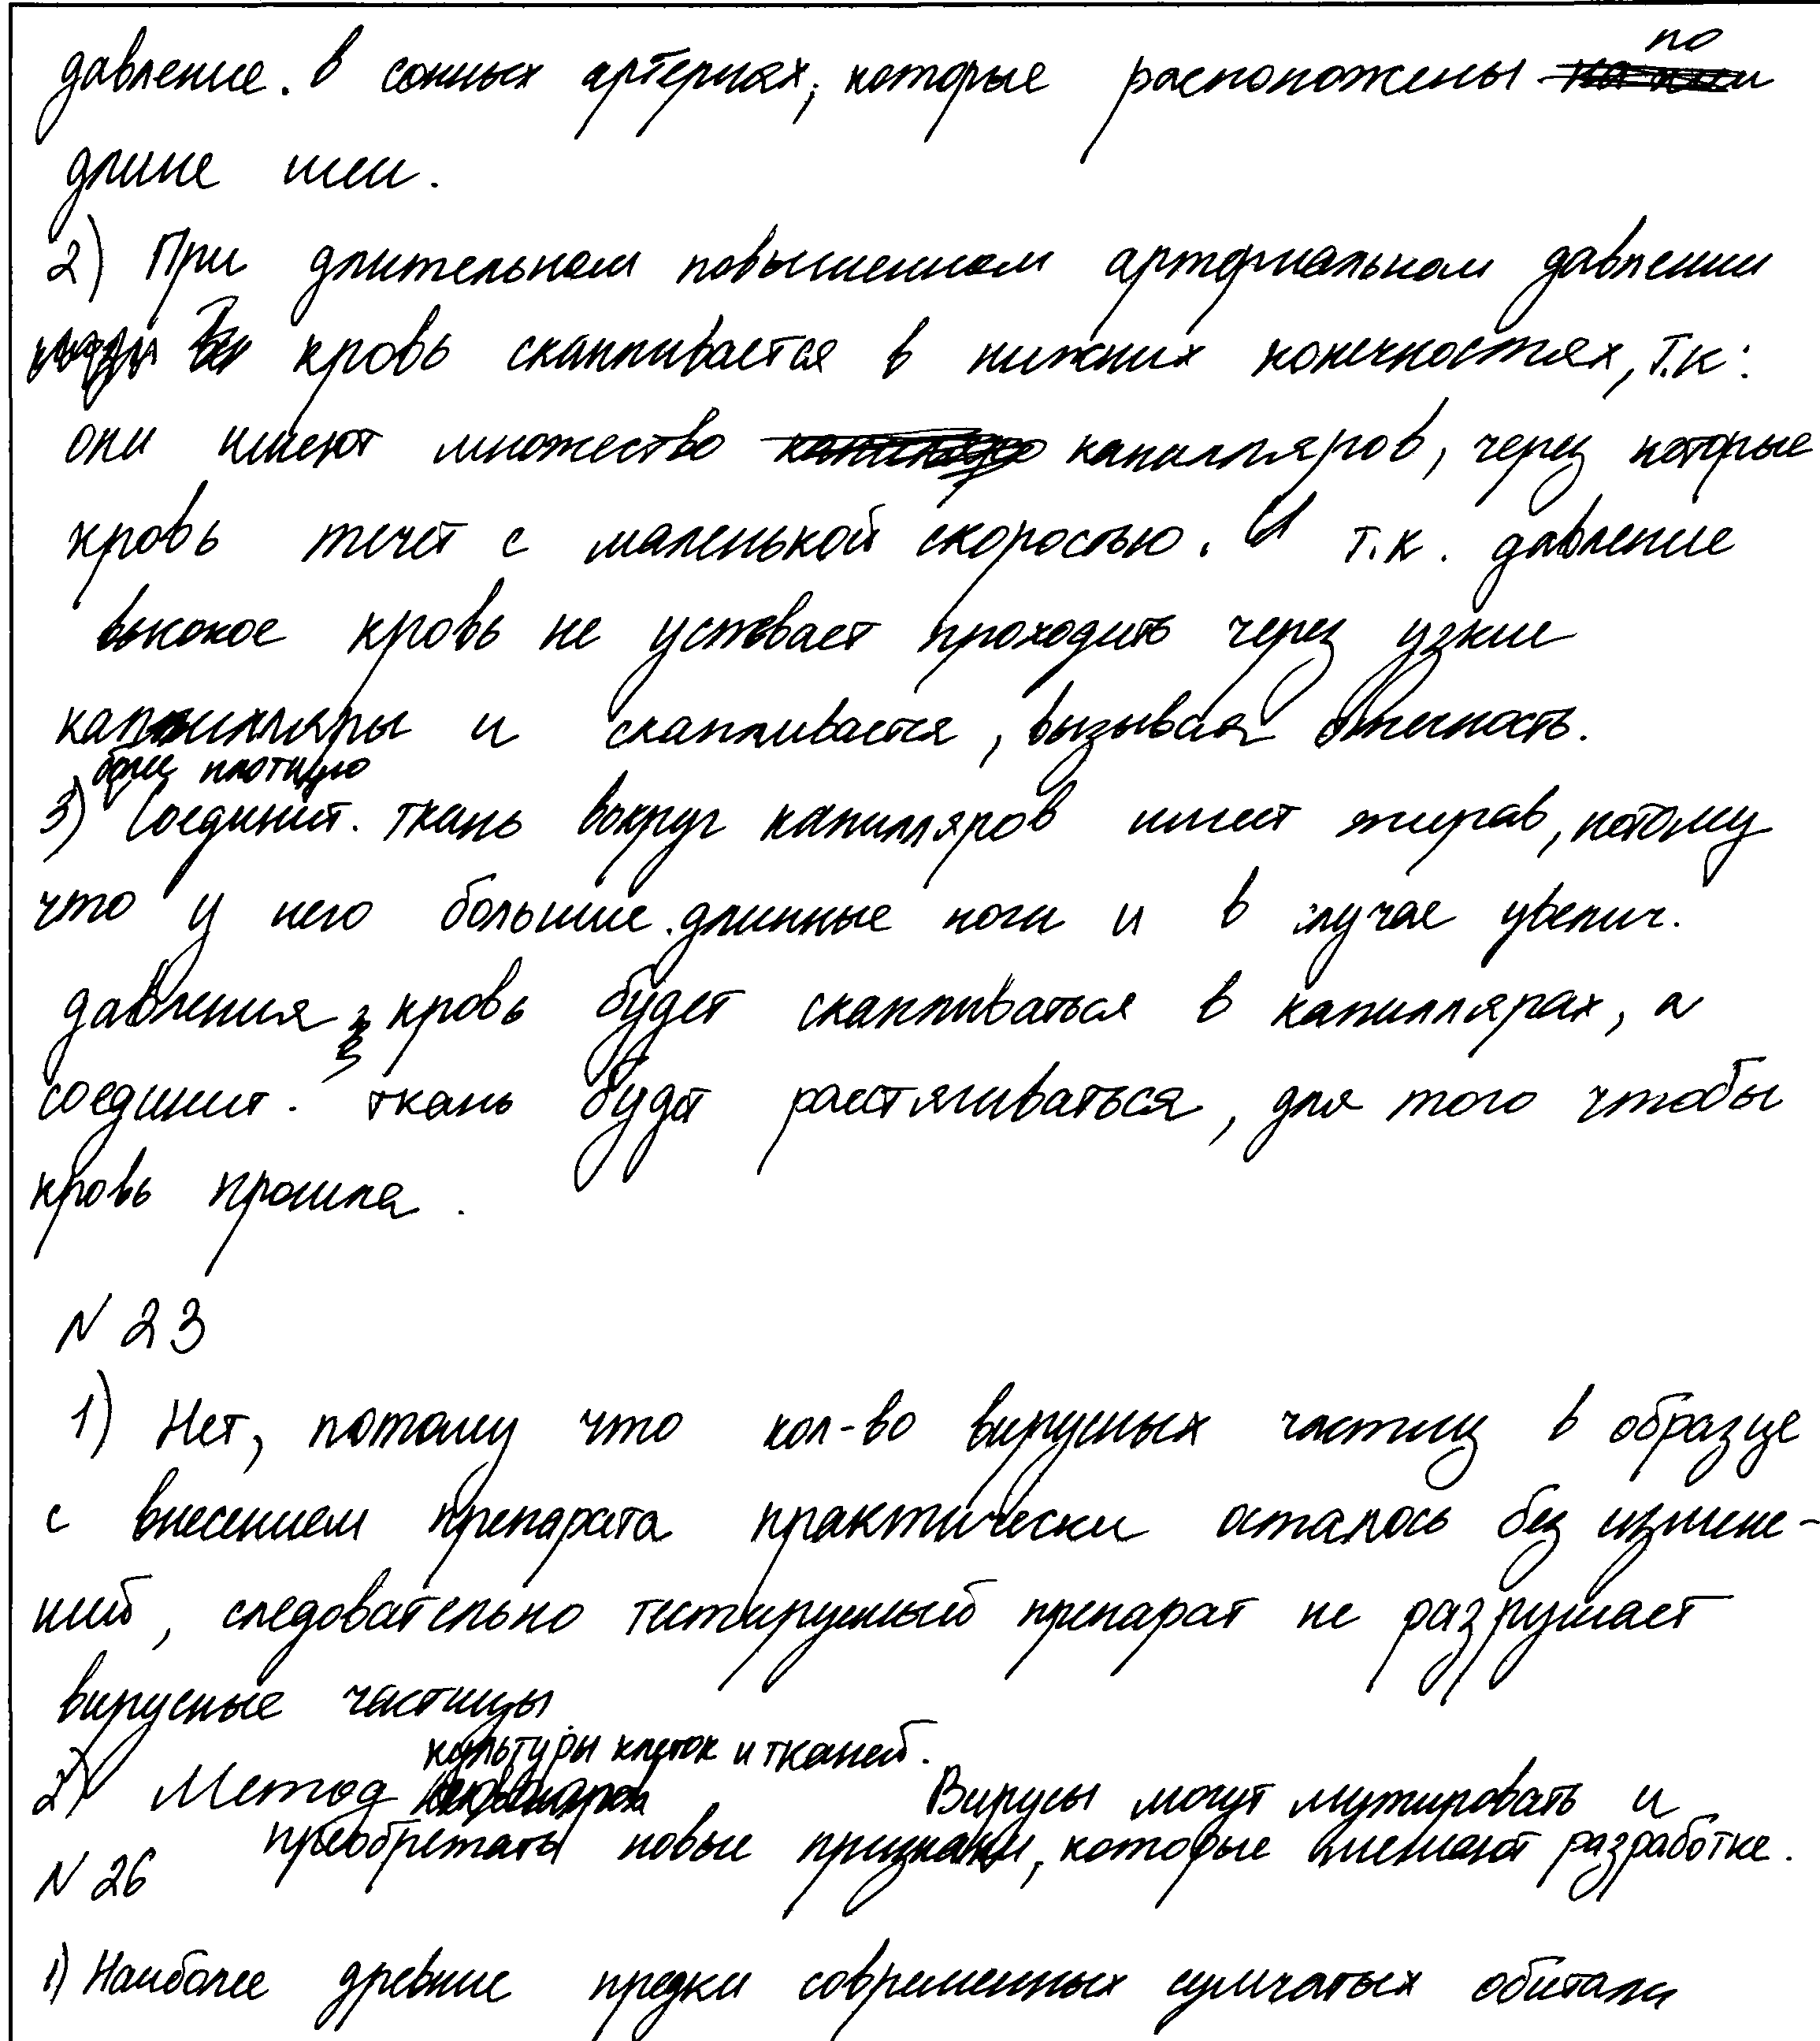 давление. в сонных артериях, которые расположены по
длине шеи.
2) При длительном повышенном артериальном давлении
кровь скапливается в нижних конечностях, т.к.
они имеют множество капилляров, через которые
кровь течет с маленькой скоростью. И т.к. давление
высокое кровь не успевает проходить через узкие
капилляры и скапливается, вызывая отечность.
более плотную
3) Соединит. ткань вокруг капилляров имеет жираф, потому
что у него большие длинные ноги и в случае увелич.
давления кровь будет скапливаться в капиллярах, а
соединит. ткань будет расстягиваться, для того чтобы
кровь прошла.
N 23
1) Нет, потому что кол-во вирусных частиц в образце
с внесением препарата практически осталось без измене-
ний, следовательно тестируемый препарат не разрушает
вирусные частицы.
культуры клеток и тканей.
2) Метод Вирусы могут мутировать и
преобретать новые признаки, которые мешают разработке.
N 26
1) Наиболее древние предки современных сумчатых обитали